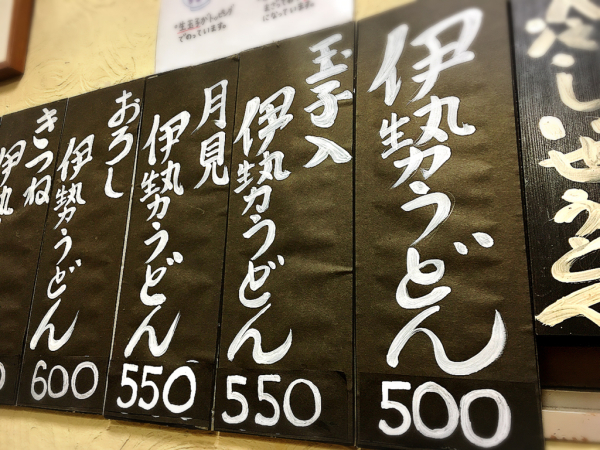 冷し伊勢うどん
伊勢うどん
500
玉子入
伊勢うどん
550
月見
伊勢うどん
550
おろし
伊勢うどん
600
きつね
伊勢